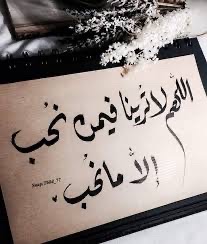 اللهم لا ترينا فيمن نحب
إلا ما نحب.